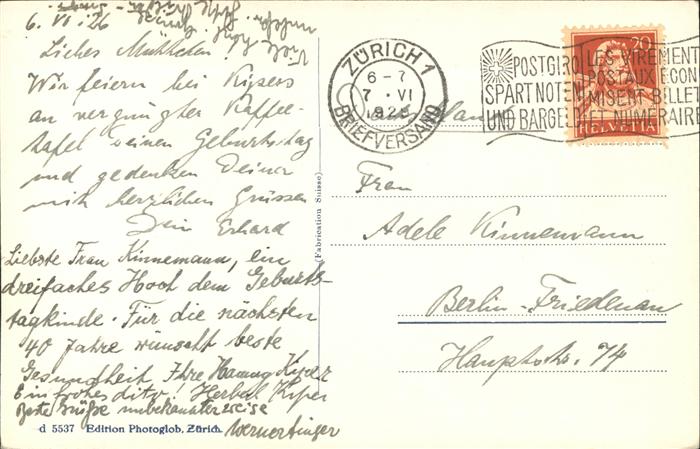 6. VI. 26
Liebes Muttchen!
Wir feiern bei Kypers
an vergnügter Kaffee-
tafel Deinen Geburtstag
und gedenken Deiner
mit herzlichen Grüssen
Dein Erhard
Liebste Frau Kinnemann, ein
dreifaches Hoch dem Geburts-
tagkinde. Für die nächsten
40 Jahre wünscht beste
Gesundheit Ihre Kyper
Ein frohes dito. Kyper
Beste Grüße unbekannterweise
d 5537 Edition Photoglob, Zürich.
(Fabrication Suisse)
ZÜRICH 1
6-7
7. VI
BRIEFVERSAND
POSTGIRO
SPART NOTEN
UND BARGELD
LES VIREMENT
POSTAUX ECON
MISENT BILLET
ET NUMERAIRE
20
HELVETIA
Frau
Adele Kinnemann
Berlin-Friedenau
Hauptstr. 74